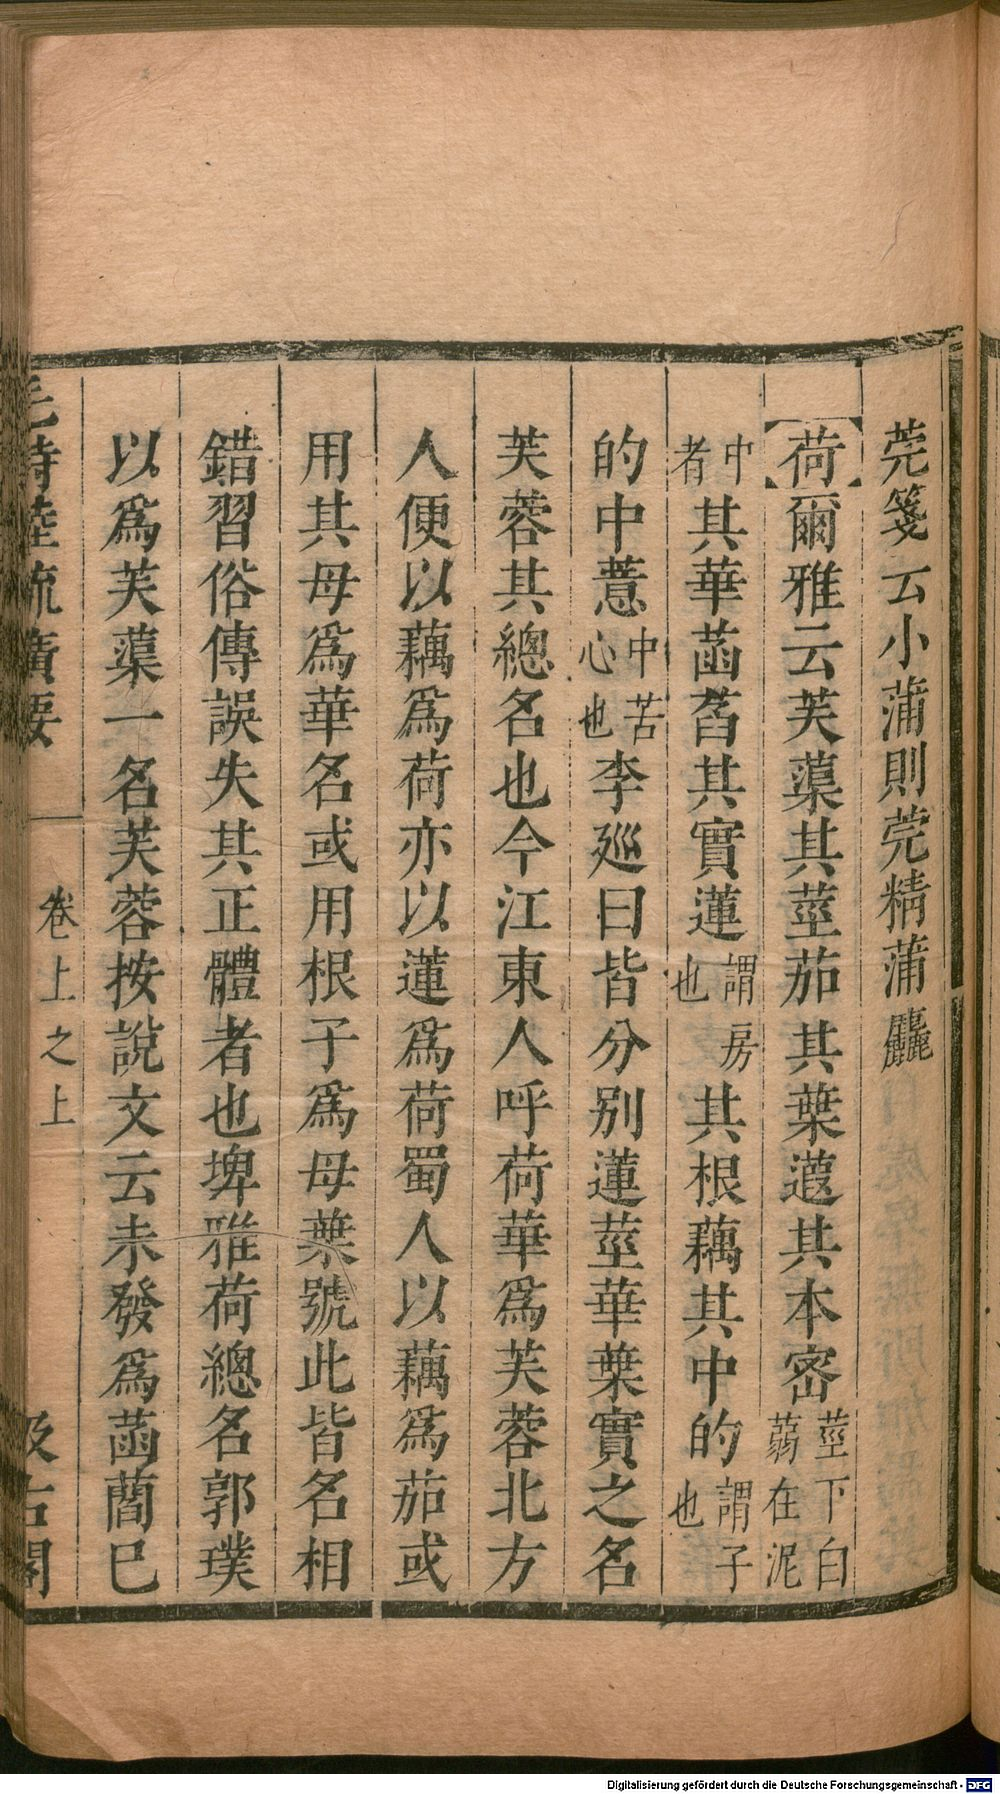 莞箋云小蒲則莞精蒲麤
【荷】爾雅云芙蕖其莖茄其葉蕸其本密莖下白蒻在泥
中者其華菡萏其實蓮謂房也其根藕其中的謂子也
的中薏中苦心也李廵曰皆分別蓮莖華葉實之名
芙蓉其總名也今江東人呼荷華爲芙蓉北方
人便以藕爲荷亦以蓮爲荷蜀人以藕爲茄或
用其母爲華名或用根子爲母葉號此皆名相
錯習俗傳誤失其正體者也埤雅荷總名郭璞
以爲芙蕖一名芙蓉按說文云未發爲菡䕞巳
毛詩陸疏廣要 卷上之上 汲古閣
Digitalisierung gefördert durch die Deutsche Forschungsgemeinschaft - DFG